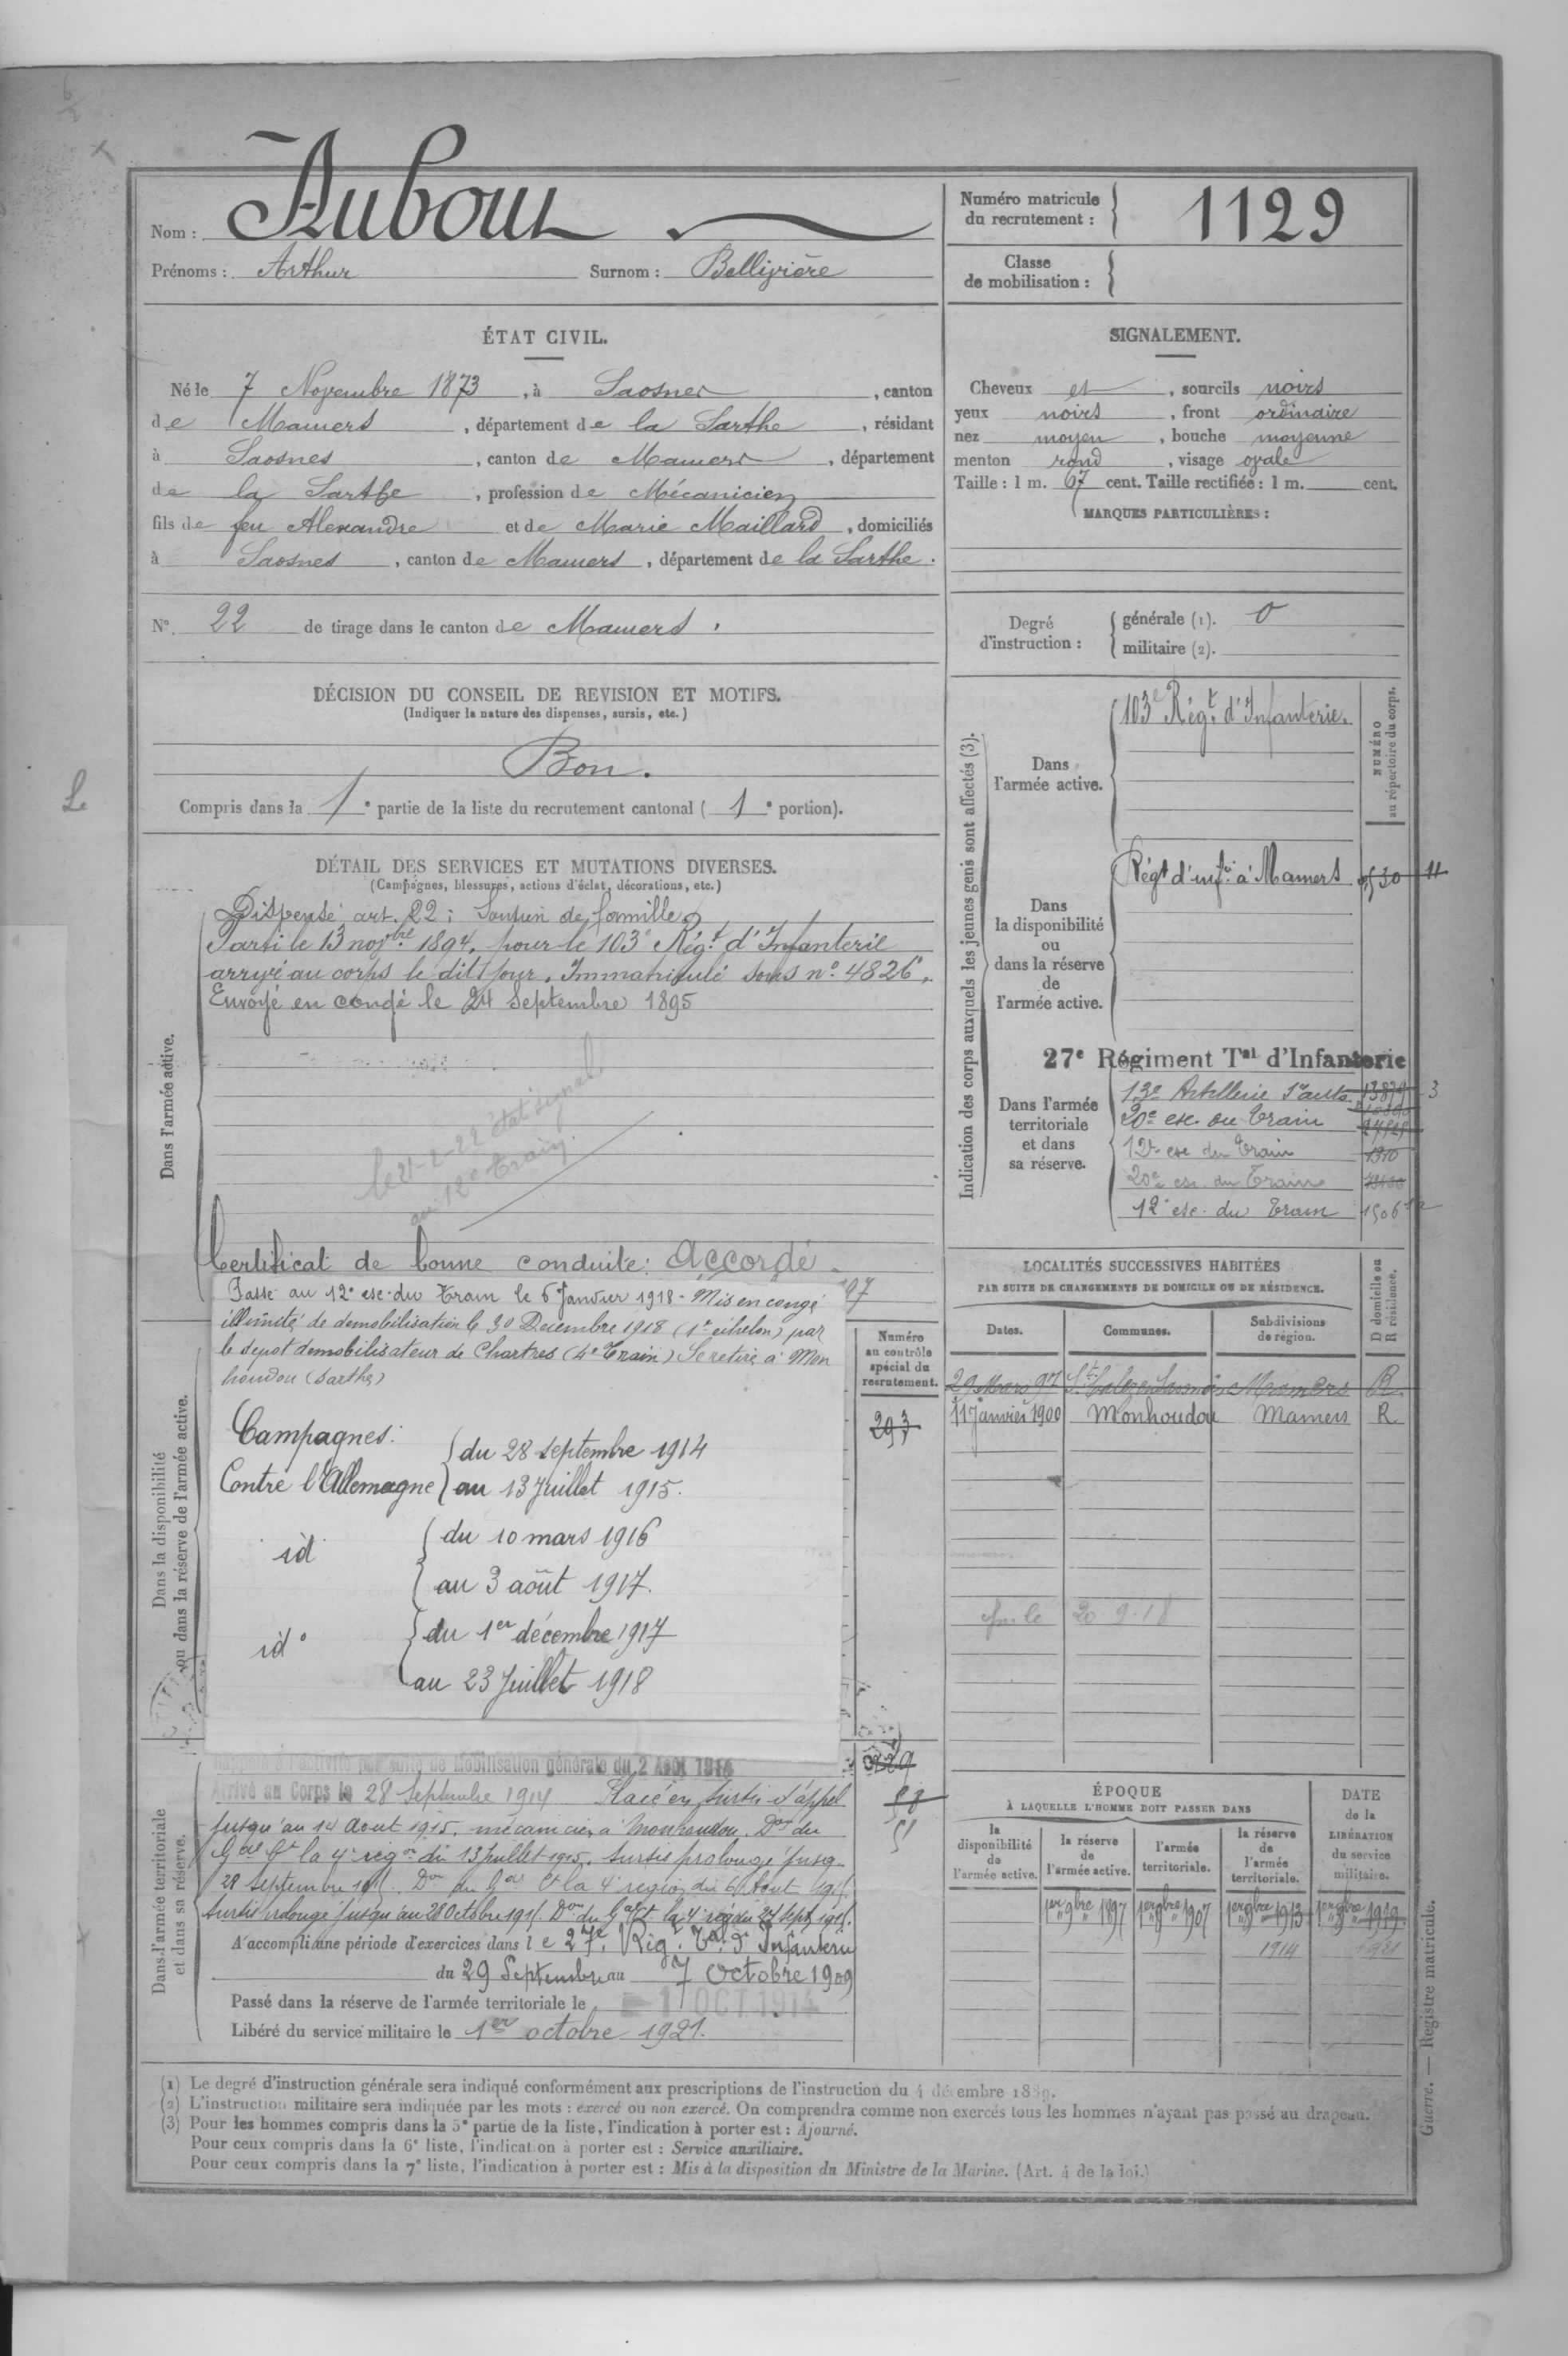 Nom : Aubour
Prénoms : Arthur Surnom : Bellivière
Numéro matricule du recrutement : 1129
Classe de mobilisation :
ÉTAT CIVIL.
Né le 7 Novembre 1873, à Saosnes, canton
de Mamers, département de la Sarthe, résidant
à Saosnes, canton de Mamers, département
de la Sarthe, profession de Mécanicien
fils de feu Alexandre et de Marie Maillard, domiciliés
à Saosnes, canton de Mamers, département de la Sarthe.
N° 22 de tirage dans le canton de Mamers.
DÉCISION DU CONSEIL DE REVISION ET MOTIFS.
(Indiquer la nature des dispenses, sursis, etc.)
Bon.
Compris dans la 1e partie de la liste du recrutement cantonal ( 1e portion).
DÉTAIL DES SERVICES ET MUTATIONS DIVERSES.
(Campagnes, blessures, actions d'éclat, décorations, etc.)
Dans l'armée active.
Dispensé art. 22 : Soutien de famille
Parti le 13 novbre 1894, pour le 103e Régt d'Infanterie
arrivé au corps le dit jour. Immatriculé sous n° 4826.
Envoyé en congé le 24 Septembre 1895
au 12e train
Certificat de bonne conduite : Accordé
97
Dans la disponibilité
ou dans la réserve de l'armée active.
Passé au 12e esc. du Train le 6 Janvier 1918 - Mis en congé
illimité de démobilisation le 30 Décembre 1918 (1er échelon) par
le dépôt démobilisateur de Chartres (4e Train) Se retire à Mon
houdou (Sarthe)
Campagnes :
Contre l'Allemagne { du 28 septembre 1914
au 13 Juillet 1915.
id { du 10 mars 1916
au 3 août 1917.
id° { du 1er décembre 1917
au 23 Juillet 1918
Numéro
au contrôle
spécial du
recrutement.
293
Dans l'armée territoriale
et dans sa réserve.
Rappelé à l'activité par suite de Mobilisation générale du 2 Août 1914
Arrivé au Corps le 28 Septembre 1914 Placé en sursis d'appel
jusqu'au 14 Août 1915, mécanicien à Monhoudou. Don du
Gal Ct la 4e région du 13 Juillet 1915. Sursis prolongé jusq
28 septembre 1915. Don du Gal Ct la 4e région du 6 Aout 1915
Sursis prolongé jusqu'au 28 Octobre 1915. Don du Gal Ct la 4e région du 27 Sept 1915.
A accompli une période d'exercices dans le 27e Rég. Tal d'Infanterie
du 29 Septembre au 7 Octobre 1909
Passé dans la réserve de l'armée territoriale le 1 OCT. 1914
Libéré du service militaire le 1er octobre 1921.
SIGNALEMENT.
Cheveux et, sourcils noirs
yeux noirs, front ordinaire
nez moyen, bouche moyenne
menton rond, visage ovale
Taille : 1 m. 67 cent. Taille rectifiée : 1 m. cent.
MARQUES PARTICULIÈRES :
Degré d'instruction : { générale (1). 0
militaire (2).
Indication des corps auxquels les jeunes gens sont affectés (3).
NUMÉRO
au répertoire du corps.
Dans
l'armée active.
103e Régt d'Infanterie.
Dans
la disponibilité
ou
dans la réserve
de
l'armée active.
Régt d'infie à Mamers 530 11
27e Régiment Tal d'Infanterie
Dans l'armée
territoriale
et dans
sa réserve.
13e Artillerie 3
20e esc. du Train
12e esc du Train 1310
20e esc. du Train
12e esc. du Train 1506
LOCALITÉS SUCCESSIVES HABITÉES
PAR SUITE DE CHANGEMENTS DE DOMICILE OU DE RÉSIDENCE.
D domicile ou
R résidence.
Dates. Communes. Subdivisions
de région.
29 Mars 97 Mamers R
11 Janvier 1900 Monhoudou Mamers R
20 9-18
ÉPOQUE
À LAQUELLE L'HOMME DOIT PASSER DANS
la
disponibilité
de
l'armée active.
la réserve
de
l'armée active.
l'armée
territoriale.
la réserve
de
l'armée
territoriale.
DATE
de la
LIBÉRATION
du service
militaire.
1er 9bre 1897 1er 9bre 1907 1er 9bre 1913 1er 9bre 1919
1914 1921
(1) Le degré d'instruction générale sera indiqué conformément aux prescriptions de l'instruction du 4 décembre 1889.
(2) L'instruction militaire sera indiquée par les mots : exercé ou non exercé. On comprendra comme non exercés tous les hommes n'ayant pas passé au drapeau.
(3) Pour les hommes compris dans la 5e partie de la liste, l'indication à porter est : Ajourné.
Pour ceux compris dans la 6e liste, l'indication à porter est : Service auxiliaire.
Pour ceux compris dans la 7e liste, l'indication à porter est : Mis à la disposition du Ministre de la Marine. (Art. 4 de la loi.)
Guerre. — Registre matricule.